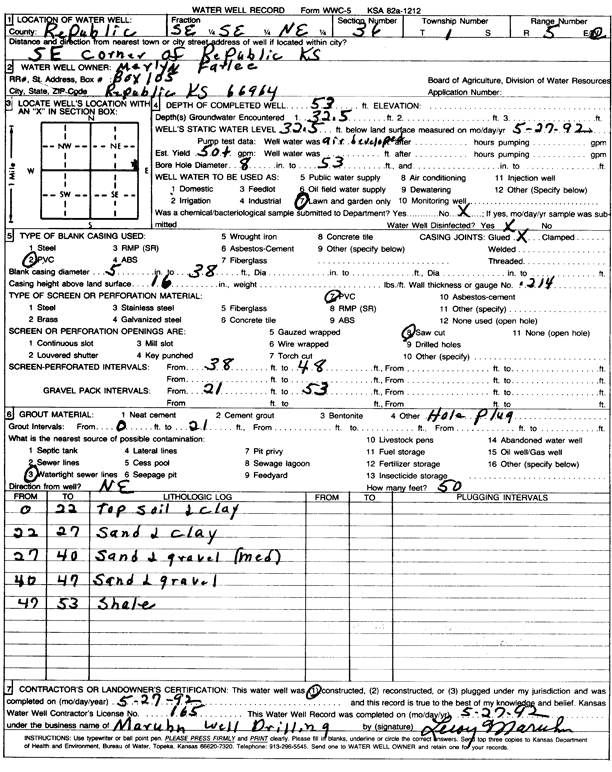 WATER WELL RECORD Form WWC-5 KSA 82a-1212
1 LOCATION OF WATER WELL: Fraction Section Number Township Number Range Number
County: Republic SE ¼ SE ¼ NE ¼ 36 T 1 S R 5 E/W
Distance and direction from nearest town or city street address of well if located within city?
SE corner of Republic KS
2 WATER WELL OWNER: Merlyn Farlee
RR#, St. Address, Box # : Box 103 Board of Agriculture, Division of Water Resources
City, State, ZIP Code : Republic KS 66964 Application Number:
3 LOCATE WELL'S LOCATION WITH AN "X" IN SECTION BOX:
N
NW NE
W E
SW SE
S
1 Mile
4 DEPTH OF COMPLETED WELL 53 ft. ELEVATION:
Depth(s) Groundwater Encountered 1. 32.5 ft. 2. ft. 3. ft.
WELL'S STATIC WATER LEVEL 32.5 ft. below land surface measured on mo/day/yr 5-27-92
Pump test data: Well water was air developed ft. after hours pumping gpm
Est. Yield 50+ gpm: Well water was ft. after hours pumping gpm
Bore Hole Diameter 8 in. to 53 ft., and in. to ft.
WELL WATER TO BE USED AS: 5 Public water supply 8 Air conditioning 11 Injection well
1 Domestic 3 Feedlot 6 Oil field water supply 9 Dewatering 12 Other (Specify below)
2 Irrigation 4 Industrial 7 Lawn and garden only 10 Monitoring well
Was a chemical/bacteriological sample submitted to Department? Yes No X ; If yes, mo/day/yr sample was submitted
Water Well Disinfected? Yes X No
5 TYPE OF BLANK CASING USED: 5 Wrought iron 8 Concrete tile CASING JOINTS: Glued X Clamped
1 Steel 3 RMP (SR) 6 Asbestos-Cement 9 Other (specify below) Welded
2 PVC 4 ABS 7 Fiberglass Threaded
Blank casing diameter 5 in. to 38 ft., Dia in. to ft., Dia in. to ft.
Casing height above land surface 16 in., weight lbs./ft. Wall thickness or gauge No. .214
TYPE OF SCREEN OR PERFORATION MATERIAL: 7 PVC 10 Asbestos-cement
1 Steel 3 Stainless steel 5 Fiberglass 8 RMP (SR) 11 Other (specify)
2 Brass 4 Galvanized steel 6 Concrete tile 9 ABS 12 None used (open hole)
SCREEN OR PERFORATION OPENINGS ARE: 5 Gauzed wrapped 8 Saw cut 11 None (open hole)
1 Continuous slot 3 Mill slot 6 Wire wrapped 9 Drilled holes
2 Louvered shutter 4 Key punched 7 Torch cut 10 Other (specify)
SCREEN-PERFORATED INTERVALS: From 38 ft. to 48 ft., From ft. to ft.
From ft. to ft., From ft. to ft.
GRAVEL PACK INTERVALS: From 21 ft. to 53 ft., From ft. to ft.
From ft. to ft., From ft. to ft.
6 GROUT MATERIAL: 1 Neat cement 2 Cement grout 3 Bentonite 4 Other Hole Plug
Grout Intervals: From 0 ft. to 21 ft., From ft. to ft., From ft. to ft.
What is the nearest source of possible contamination: 10 Livestock pens 14 Abandoned water well
1 Septic tank 4 Lateral lines 7 Pit privy 11 Fuel storage 15 Oil well/Gas well
2 Sewer lines 5 Cess pool 8 Sewage lagoon 12 Fertilizer storage 16 Other (specify below)
3 Watertight sewer lines 6 Seepage pit 9 Feedyard 13 Insecticide storage
Direction from well? NE How many feet? 50
FROM TO LITHOLOGIC LOG FROM TO PLUGGING INTERVALS
0 22 Top soil & clay
22 27 Sand & clay
27 40 Sand & gravel (med)
40 47 Sand & gravel
47 53 Shale
7 CONTRACTOR'S OR LANDOWNER'S CERTIFICATION: This water well was (1) constructed, (2) reconstructed, or (3) plugged under my jurisdiction and was
completed on (mo/day/year) 5-27-92 and this record is true to the best of my knowledge and belief. Kansas
Water Well Contractor's License No. 165 This Water Well Record was completed on (mo/day/yr) 5-27-92
under the business name of Maruhn Well Drilling by (signature) Leroy Maruhn
INSTRUCTIONS: Use typewriter or ball point pen. PLEASE PRESS FIRMLY and PRINT clearly. Please fill in blanks, underline or circle the correct answers. Send top three copies to Kansas Department
of Health and Environment, Bureau of Water, Topeka, Kansas 66620-7320. Telephone: 913-296-5545. Send one to WATER WELL OWNER and retain one for your records.